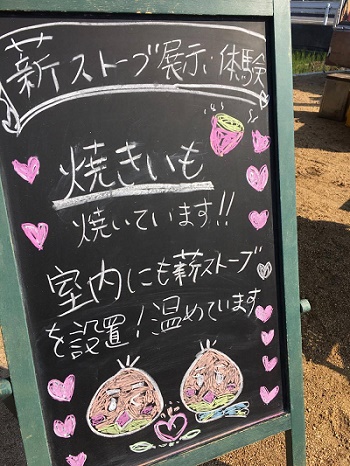 薪ストーブ展示、体験
焼きいも
焼いています!!
室内にも薪ストーブ
を設置!温めています